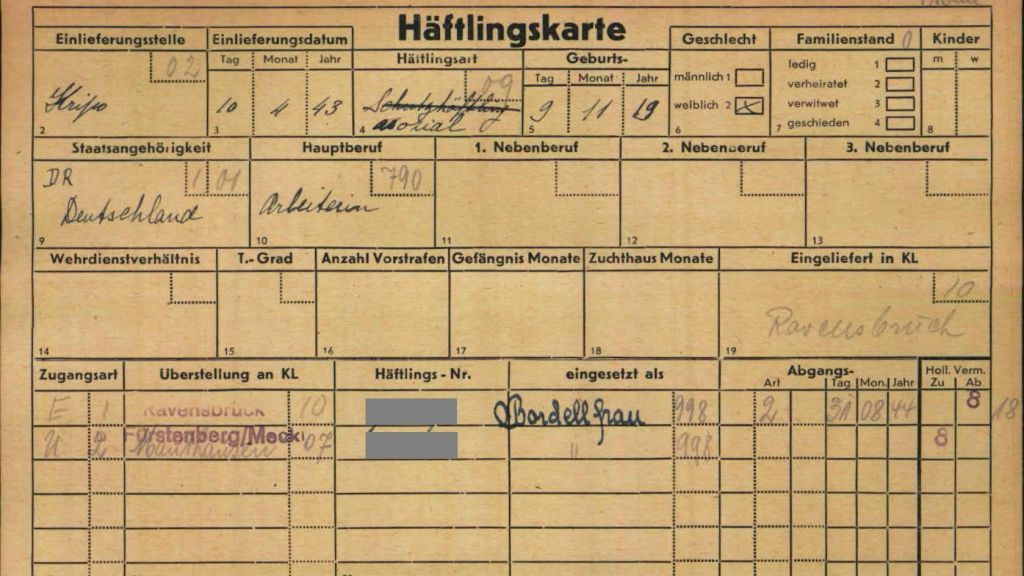 Häftlingskarte
Einlieferungsstelle Einlieferungsdatum Häftlingsart Geburts- Geschlecht Familienstand 0 Kinder
Tag Monat Jahr Tag Monat Jahr m w
02 09
männlich 1 ledig 1
verheiratet 2
Kripo 10 4 43 Schutzhäftling 9 11 19 weiblich 2 verwitwet 3
asozial geschieden 4
2 3 4 5 6 7 8
Staatsangehörigkeit Hauptberuf 1. Nebenberuf 2. Nebenberuf 3. Nebenberuf
DR 1 01 790
Deutschland Arbeiterin
9 10 11 12 13
Wehrdienstverhältnis T.-Grad Anzahl Vorstrafen Gefängnis Monate Zuchthaus Monate Eingeliefert in KL
10
Ravensbrück
14 15 16 17 18 19
Zugangsart Überstellung an KL Häftlings-Nr. eingesetzt als Abgangs- Holl. Verm.
Art Tag Mon. Jahr Zu Ab
E 1 Ravensbrück 10 Bordellfrau 998 2 31 08 44 8 18
Fürstenberg/Meckl
U 2 Mauthausen 07 " 998 8